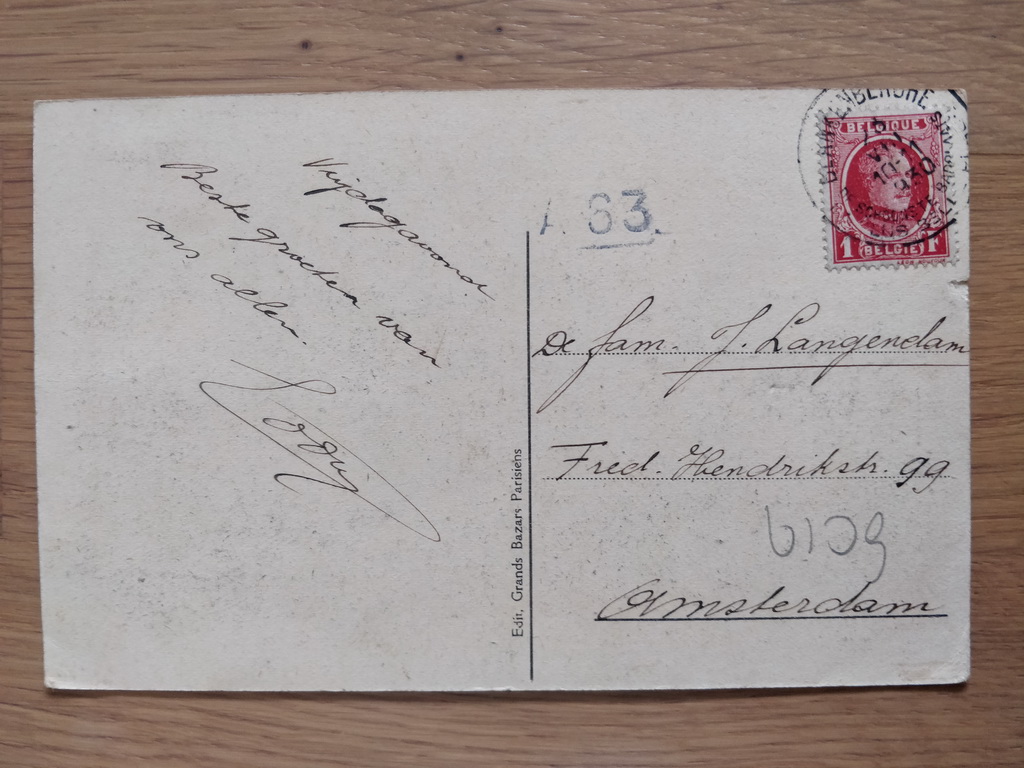 Vrijdagavond.
Beste groeten van
ons allen.
Edit. Grands Bazars Parisiens
A 63.
BLANKENBERGHE
BELGIQUE
1 F
(BELGIE)
De fam. J. Langendam
Fred. Hendrikstr. 99
Amsterdam